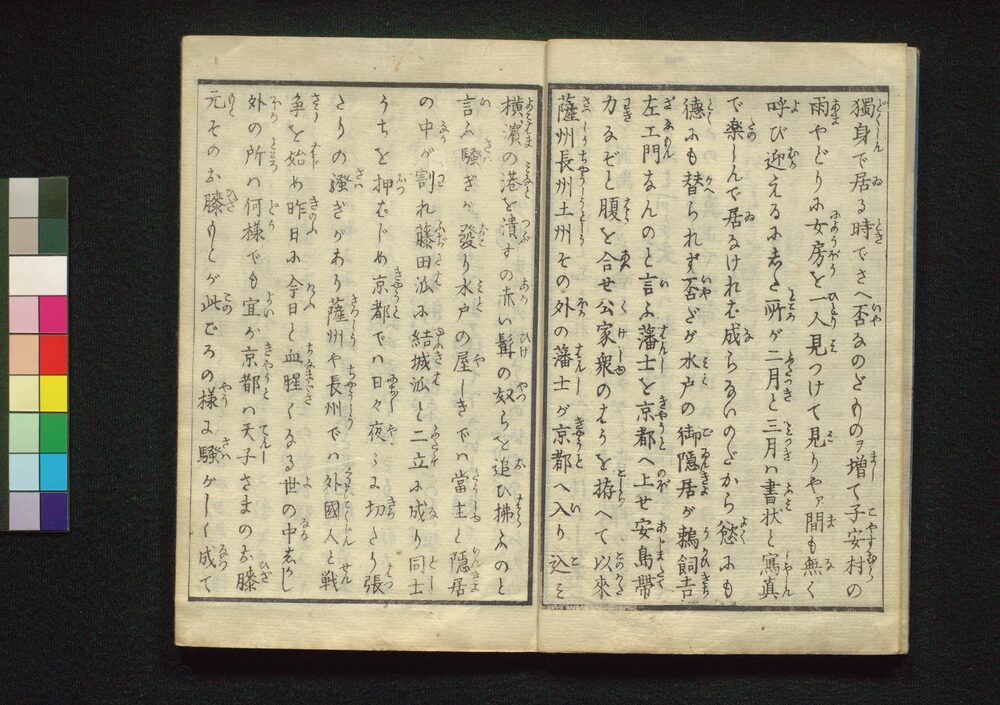 獨身で居る時でさへ否なのどものヲ増て子安村の
雨やどりに女房を一人見つけて見りやァ間も無く
呼び迎えるに志た所が二月と三月ハ書状と寫眞
で楽しんで居るけれバ成らないのだから慾にも
徳にも替られず否だが水戸の御隠居が鵜飼吉
左エ門なんのと言ふ藩士を京都へ上せ安島帯
刀なぞと腹を合せ公家衆のはうを拵へて以來
薩州長州土州その外の藩士が京都へ入り込ミ
横濱の港を潰すの赤い髯の奴らを追ひ拂ふのと
言ふ騒ぎが發り水戸の屋しきでハ當主と隠居
の中が割れ藤田派に結城派と二立に成り同士
うちを押はじめ京都でハ日々夜々に切たり張
たりの騒ぎがあり薩州や長州でハ外國人と戦
争を始め昨日に今日と血腥くなる世の中志かし
外の所ハ何様でも宜が京都ハ天子さまのお膝
元そのお膝もとが此ごろの様に騒がしく成て